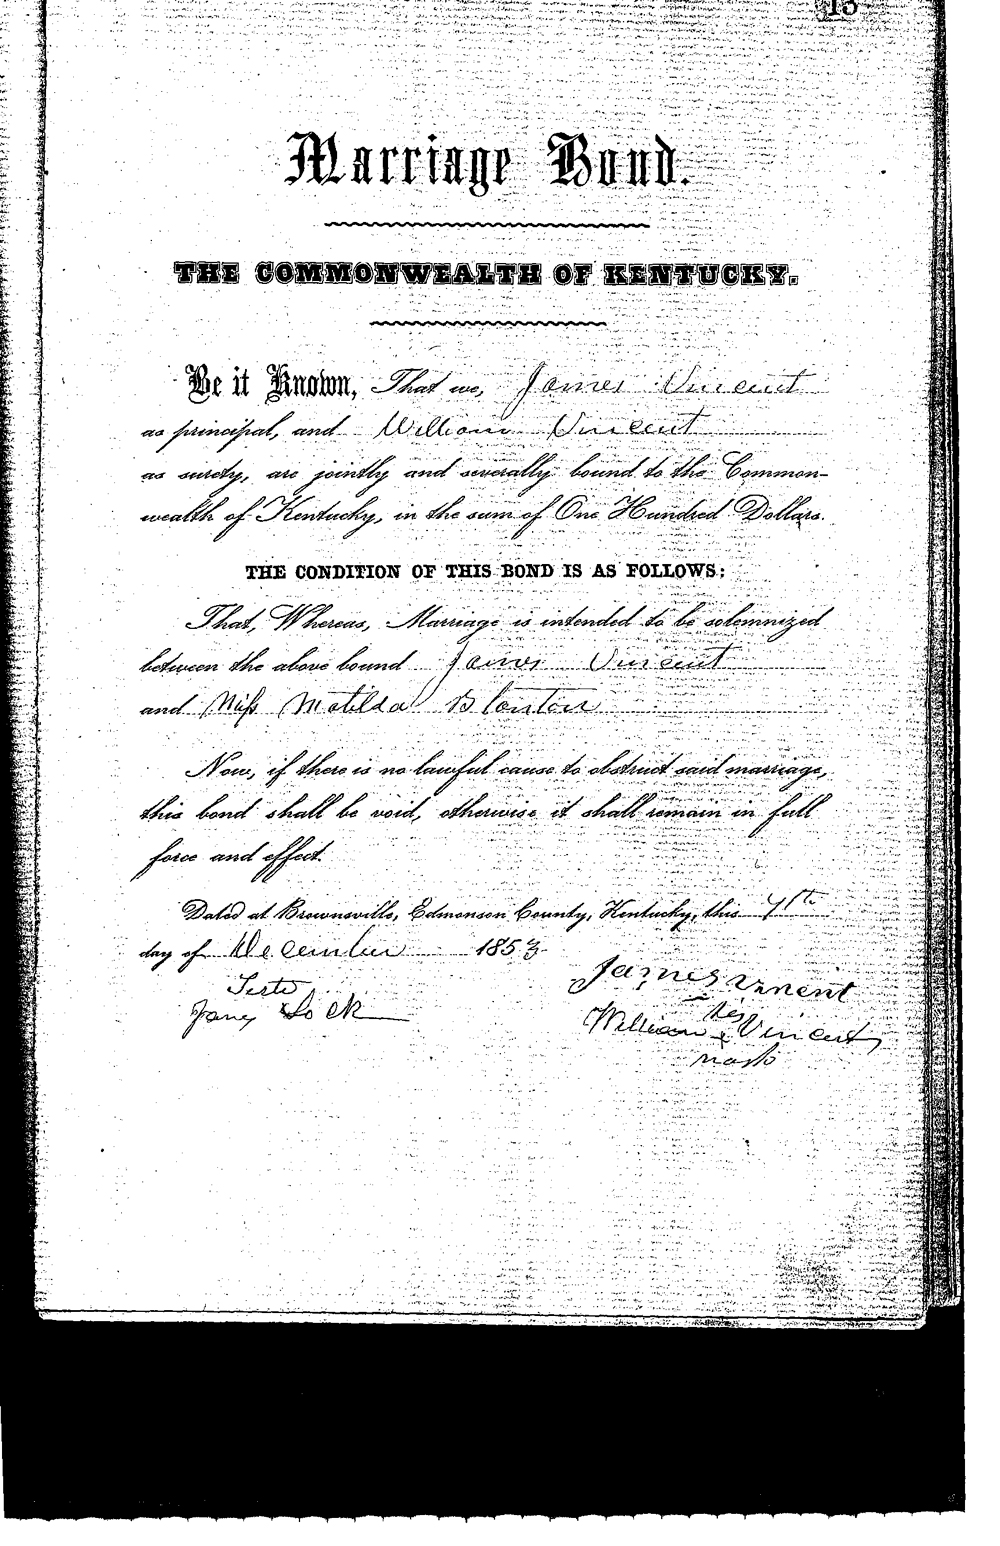 15
Marriage Bond.
THE COMMONWEALTH OF KENTUCKY.
Be it Known, That we, James Vincent
as principal, and William Vincent
as surety, are jointly and severally bound to the Common-
wealth of Kentucky, in the sum of One Hundred Dollars.
THE CONDITION OF THIS BOND IS AS FOLLOWS:
That, Whereas, Marriage is intended to be solemnized
between the above bound James Vincent
and Miss Matilda Blanton
Now, if there is no lawful cause to obstruct said marriage,
this bond shall be void, otherwise it shall remain in full
force and effect.
Dated at Brownsville, Edmonson County, Kentucky, this 7th
day of December 1853
Teste
James Vincent
Lock
his
William x Vincent
mark